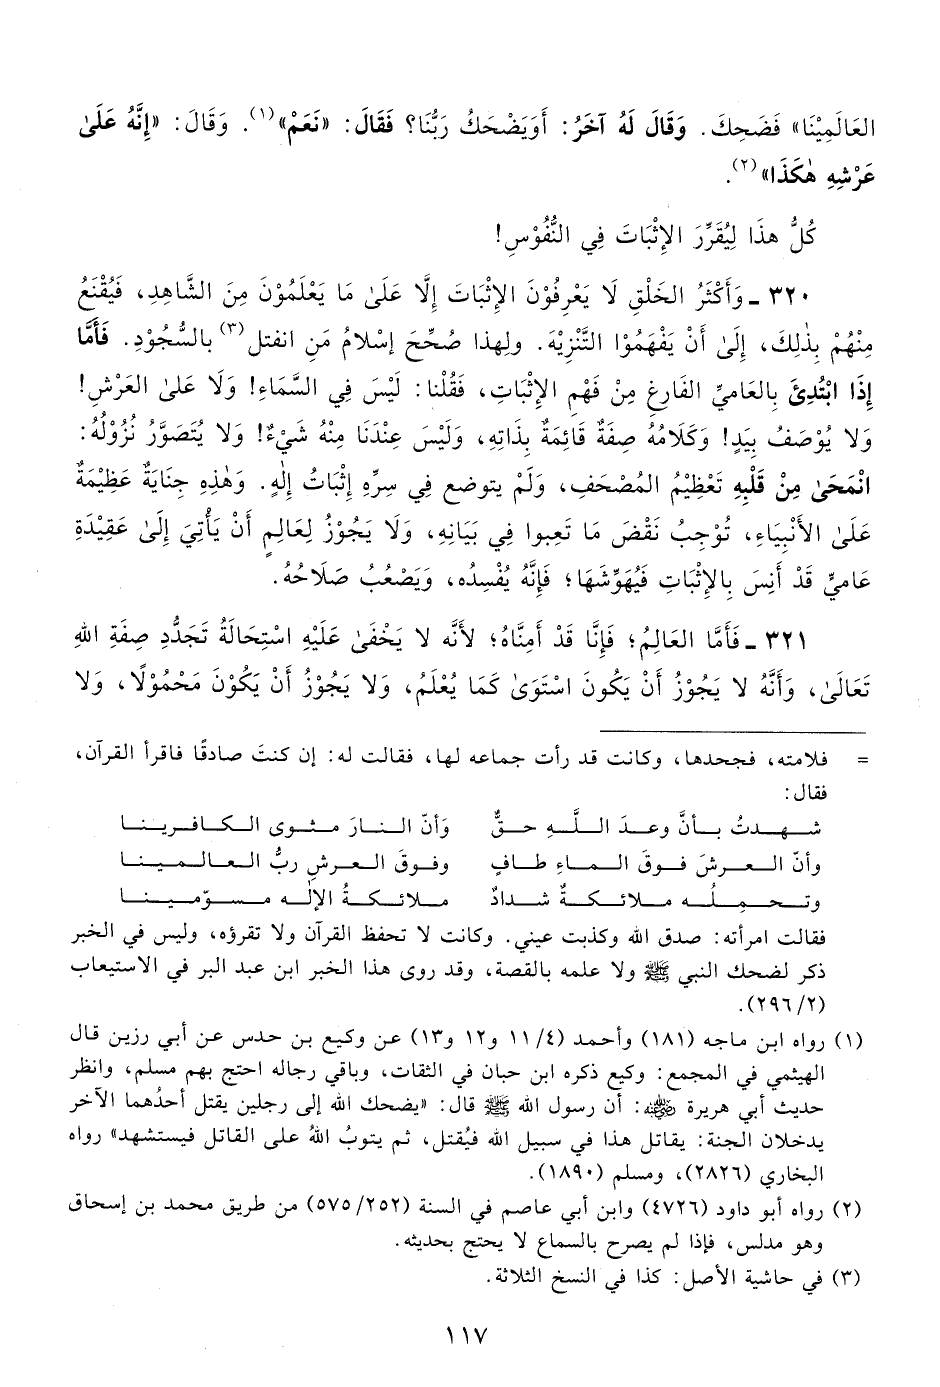 العَالَمِيْنَا» فَضَحِكَ. وَقَالَ لَهُ آخَرُ: أَوَيَضْحَكُ رَبُّنَا؟ فَقَالَ: «نَعَمْ»(١). وَقَالَ: «إِنَّهُ عَلَىٰ
عَرْشِهِ هٰكَذَا»(٢).
كُلُّ هذَا لِيُقَرِّرَ الإِثْبَاتَ فِي النُّفُوْسِ!
٣٢٠ ـ وَأَكْثَرُ الخَلْقِ لَا يَعْرِفُوْنَ الإِثْبَاتَ إِلَّا عَلَىٰ مَا يَعْلَمُوْنَ مِنَ الشَّاهِدِ، فَيُقْنَعُ
مِنْهُمْ بِذٰلِكَ، إِلَىٰ أَنْ يَفْهَمُوْا التَّنْزِيْهَ. ولِهذا صُحِّحَ إسْلامُ مَنِ انفتل(٣) بالسُّجُوْدِ. فَأَمَّا
إِذَا ابْتُدِئَ بِالعَامِيِّ الفَارِغِ مِنْ فَهْمِ الإِثْبَاتِ، فَقُلْنا: لَيْسَ فِي السَّمَاءِ! وَلَا عَلىٰ العَرْشِ!
وَلا يُوْصَفُ بِيَدٍ! وَكَلَامُهُ صِفَةٌ قَائِمَةٌ بِذَاتِهِ، وَلَيْسَ عِنْدَنَا مِنْهُ شَيْءٌ! وَلا يُتَصَوَّرُ نُزُوْلُهُ:
انْمَحَىٰ مِنْ قَلْبِهِ تَعْظِيْمُ المُصْحَفِ، وَلَمْ يتوضع فِي سِرِّهِ إِثْبَاتُ إِلٰهٍ. وَهٰذِهِ جِنَايَةٌ عَظِيْمَةٌ
عَلَىٰ الأَنْبِيَاءِ، تُوْجِبُ نَقْضَ مَا تَعِبوا فِي بَيَانِهِ، وَلَا يَجُوْزُ لِعَالِمٍ أَنْ يَأْتِيَ إِلَىٰ عَقِيْدَةِ
عَامِيٍّ قَدْ أَنِسَ بِالإِثْبَاتِ فَيُهَوِّشَهَا؛ فَإِنَّهُ يُفْسِدُه، وَيَصْعُبُ صَلَاحُهُ.
٣٢١ ـ فَأَمَّا العَالِمُ؛ فَإِنَّا قَدْ أَمِنَّاهُ؛ لأَنَّه لَا يَخْفَىٰ عَلَيْهِ اسْتِحَالَةُ تَجَدُّدِ صِفَةِ اللهِ
تَعَالَىٰ، وَأَنَّهُ لا يَجُوْزُ أَنْ يَكُونَ اسْتَوَىٰ كَمَا يُعْلَمُ، وَلا يَجُوْزُ أَنْ يَكُوْنَ مَحْمُوْلًا، وَلا
= فلامته، فجحدها، وكانت قد رأت جماعه لها، فقالت له: إن كنتَ صادقًا فاقرأ القرآن،
فقال:
شهدتُ بأنَّ وعدَ اللَّهِ حقٌّ وَأنّ النارَ مثوى الكافرينا
وأنّ العرشَ فوقَ الماءِ طافٍ وفوقَ العرشِ ربُّ العالمينا
وتحملُه ملائكةٌ شدادٌ ملائكةُ الإلٰه مسوّمينا
فقالت امرأته: صدق الله وكذبت عيني. وكانت لا تحفظ القرآن ولا تقرؤه، وليس في الخبر
ذكر لضحك النبي ﷺ ولا علمه بالقصة، وقد روى هذا الخبر ابن عبد البر في الاستيعاب
(٢/ ٢٩٦).
(١) رواه ابن ماجه (١٨١) وأحمد (٤/ ١١ و١٢ و١٣) عن وكيع بن حدس عن أبي رزين قال
الهيثمي في المجمع: وكيع ذكره ابن حبان في الثقات، وباقي رجاله احتج بهم مسلم، وانظر
حديث أبي هريرة رضي الله عنه: أن رسول الله ﷺ قال: «يضحك الله إلى رجلين يقتل أحدُهما الآخر
يدخلان الجنة: يقاتل هذا في سبيل الله فيُقتل، ثم يتوبُ اللهُ على القاتل فيستشهد» رواه
البخاري (٢٨٢٦)، ومسلم (١٨٩٠).
(٢) رواه أبو داود (٤٧٢٦) وابن أبي عاصم في السنة (٢٥٢/ ٥٧٥) من طريق محمد بن إسحاق
وهو مدلس، فإذا لم يصرح بالسماع لا يحتج بحديثه.
(٣) في حاشية الأصل: كذا في النسخ الثلاثة.
١١٧